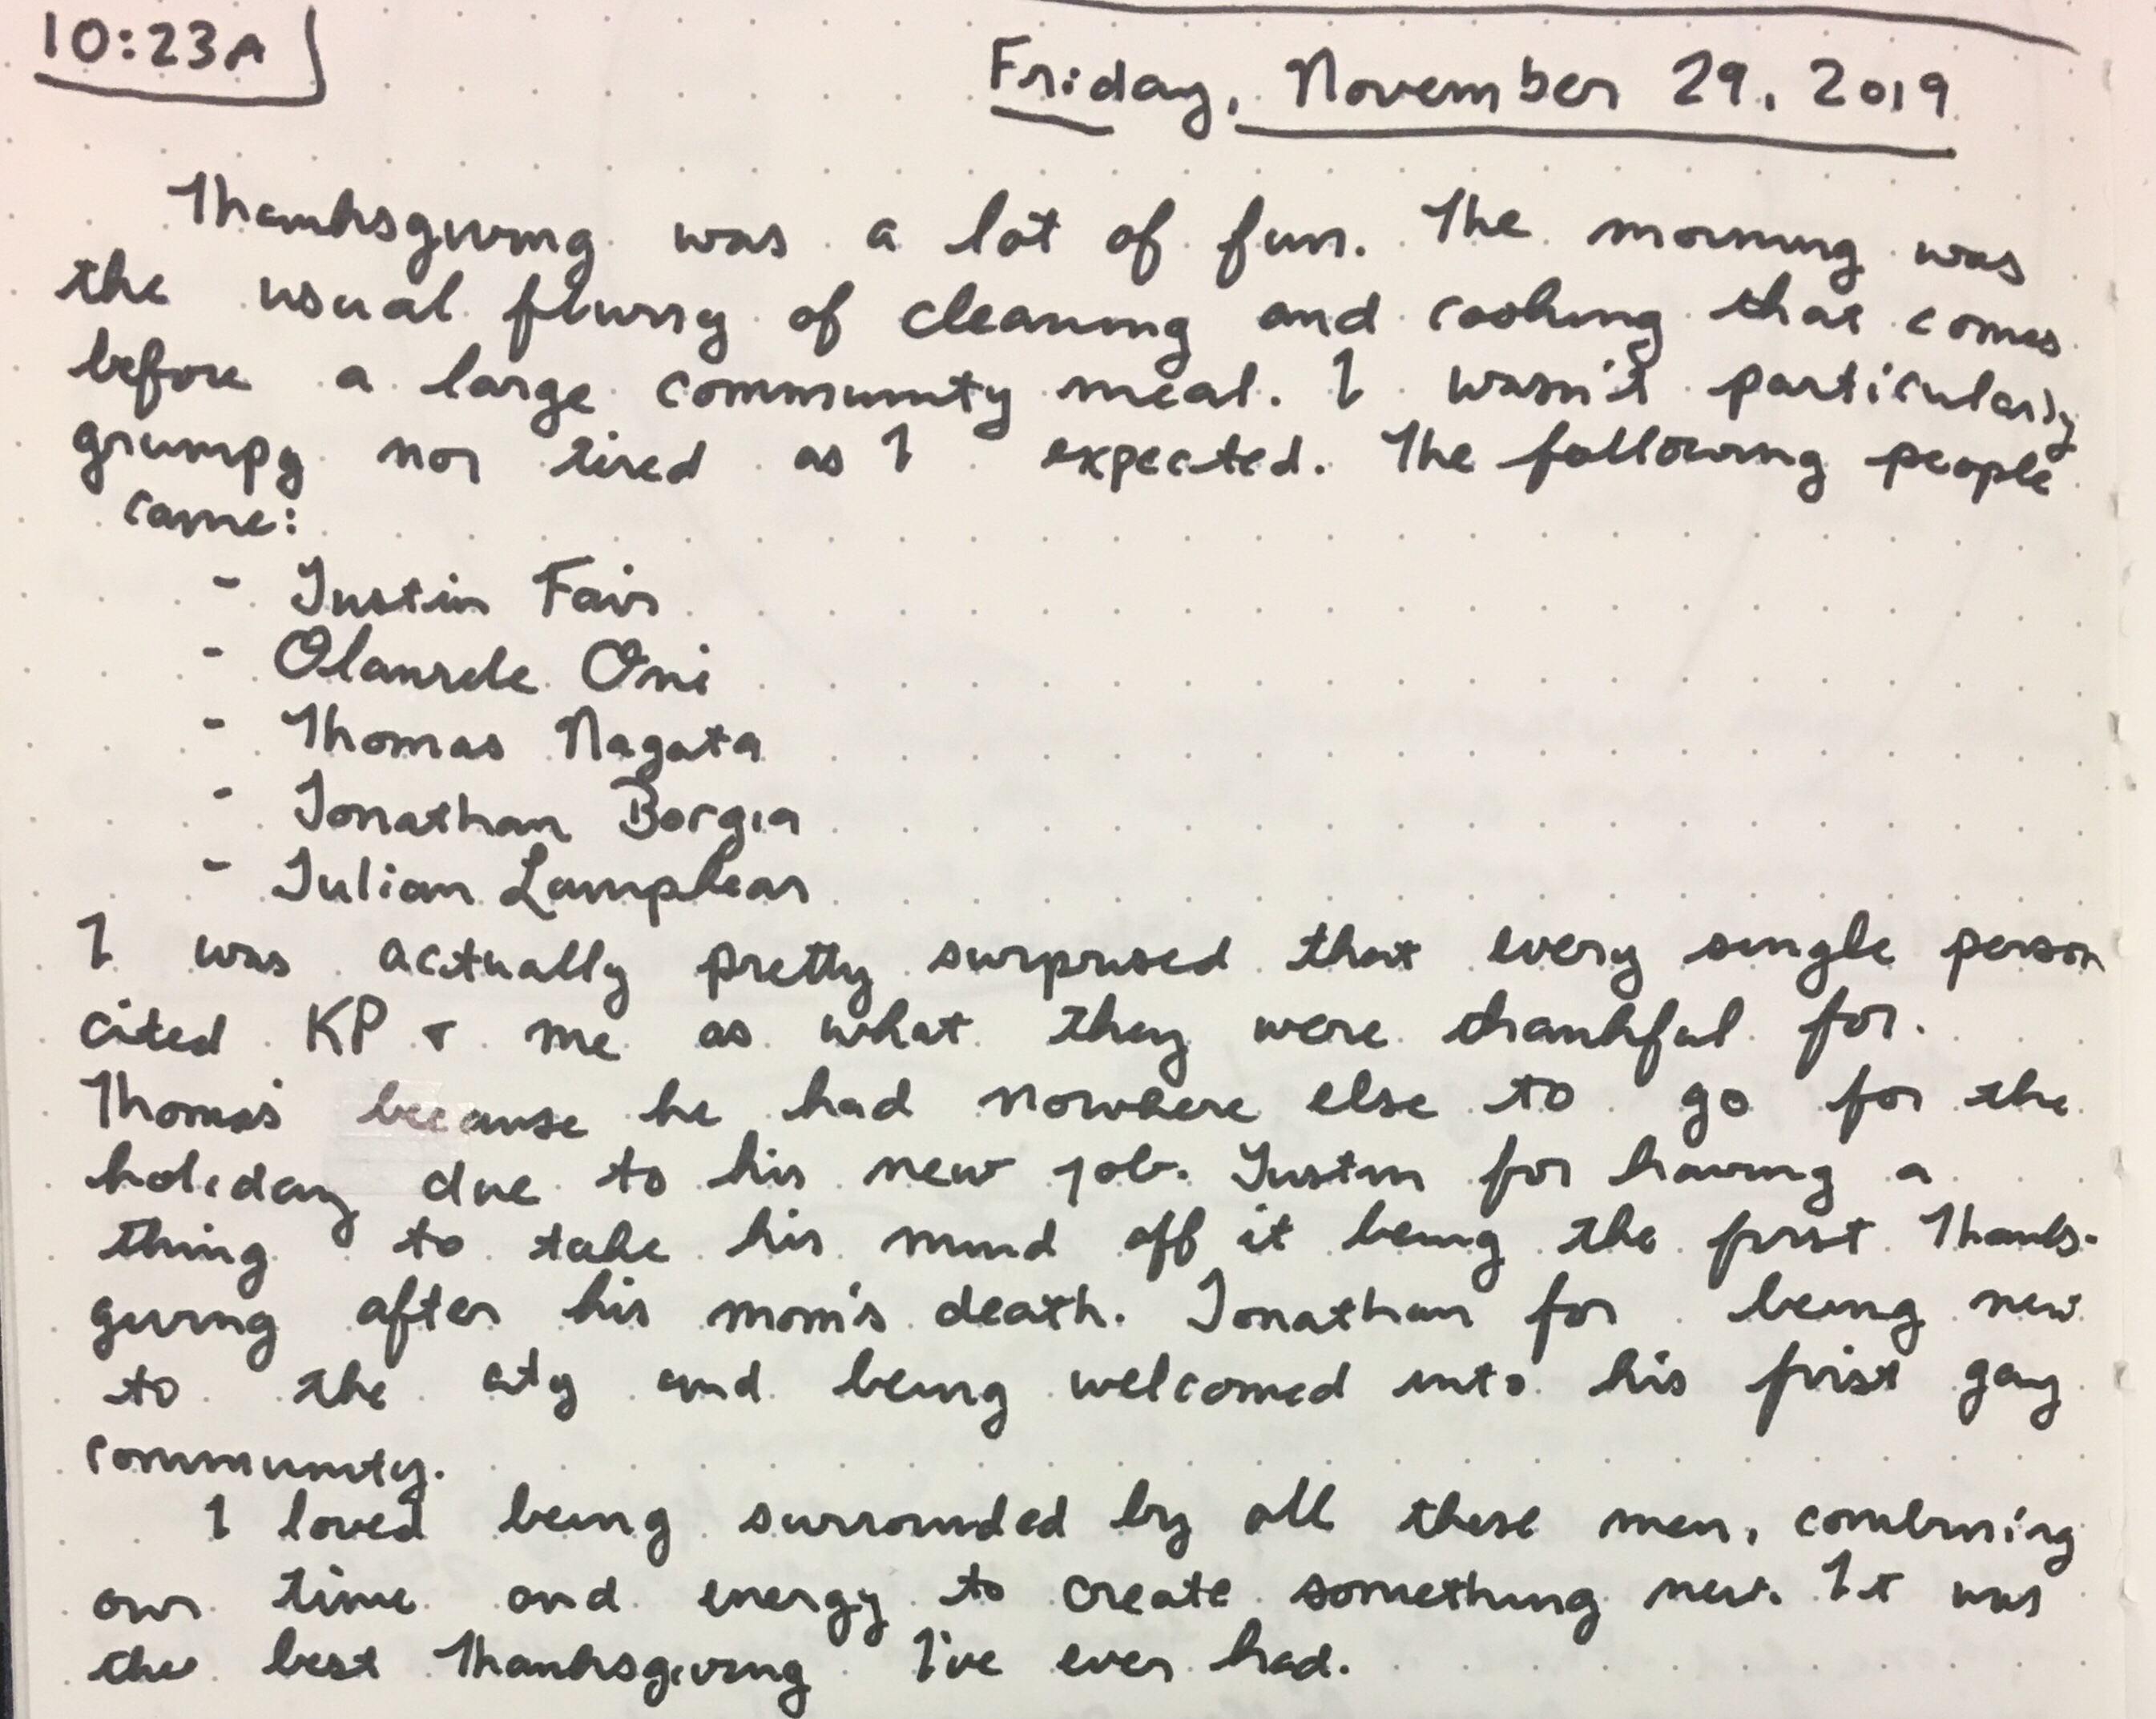 10:23A
Friday, November 29, 2019
Thanksgiving was a lot of fun. The morning was
the usual flurry of cleaning and cooking that comes
before a large community meal. I wasn't particularly
grumpy nor tired as I expected. The following people
came:
- Justin Fair
- Olanrele Oni
- Thomas Nagata
- Jonathan Borgia
- Julian Lamphear
I was actually pretty surprised that every single person
cited KP + me as what they were thankful for.
Thomas because he had nowhere else to go for the
holiday due to his new job. Justin for having a
thing to take his mind off it being the first Thanks-
giving after his mom's death. Jonathan for being new
to the city and being welcomed into his first gay
community.
I loved being surrounded by all these men, combining
our time and energy to create something new. It was
the best Thanksgiving I've ever had.